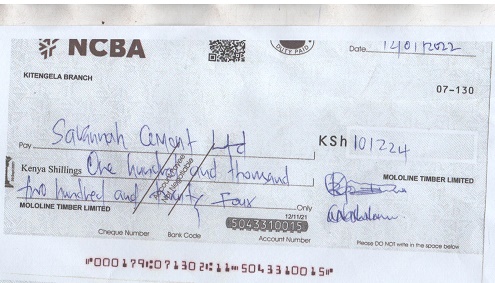 NCBA
DUTY PAID
Date 12/01/2022
KITENGELA BRANCH
07-130
Pay Savannah Cement Ltd
KSh 101224
Kenya Shillings One hundred and thousand
Account Payee
Not Negotiable
two hundred and twenty Four Only
MOLOLINE TIMBER LIMITED
MOLOLINE TIMBER LIMITED
12/11/21
5043310015
Cheque Number Bank Code Account Number
Please DO NOT write in the space below
⑈000179⑆071302⑆11⑈5043310015⑈